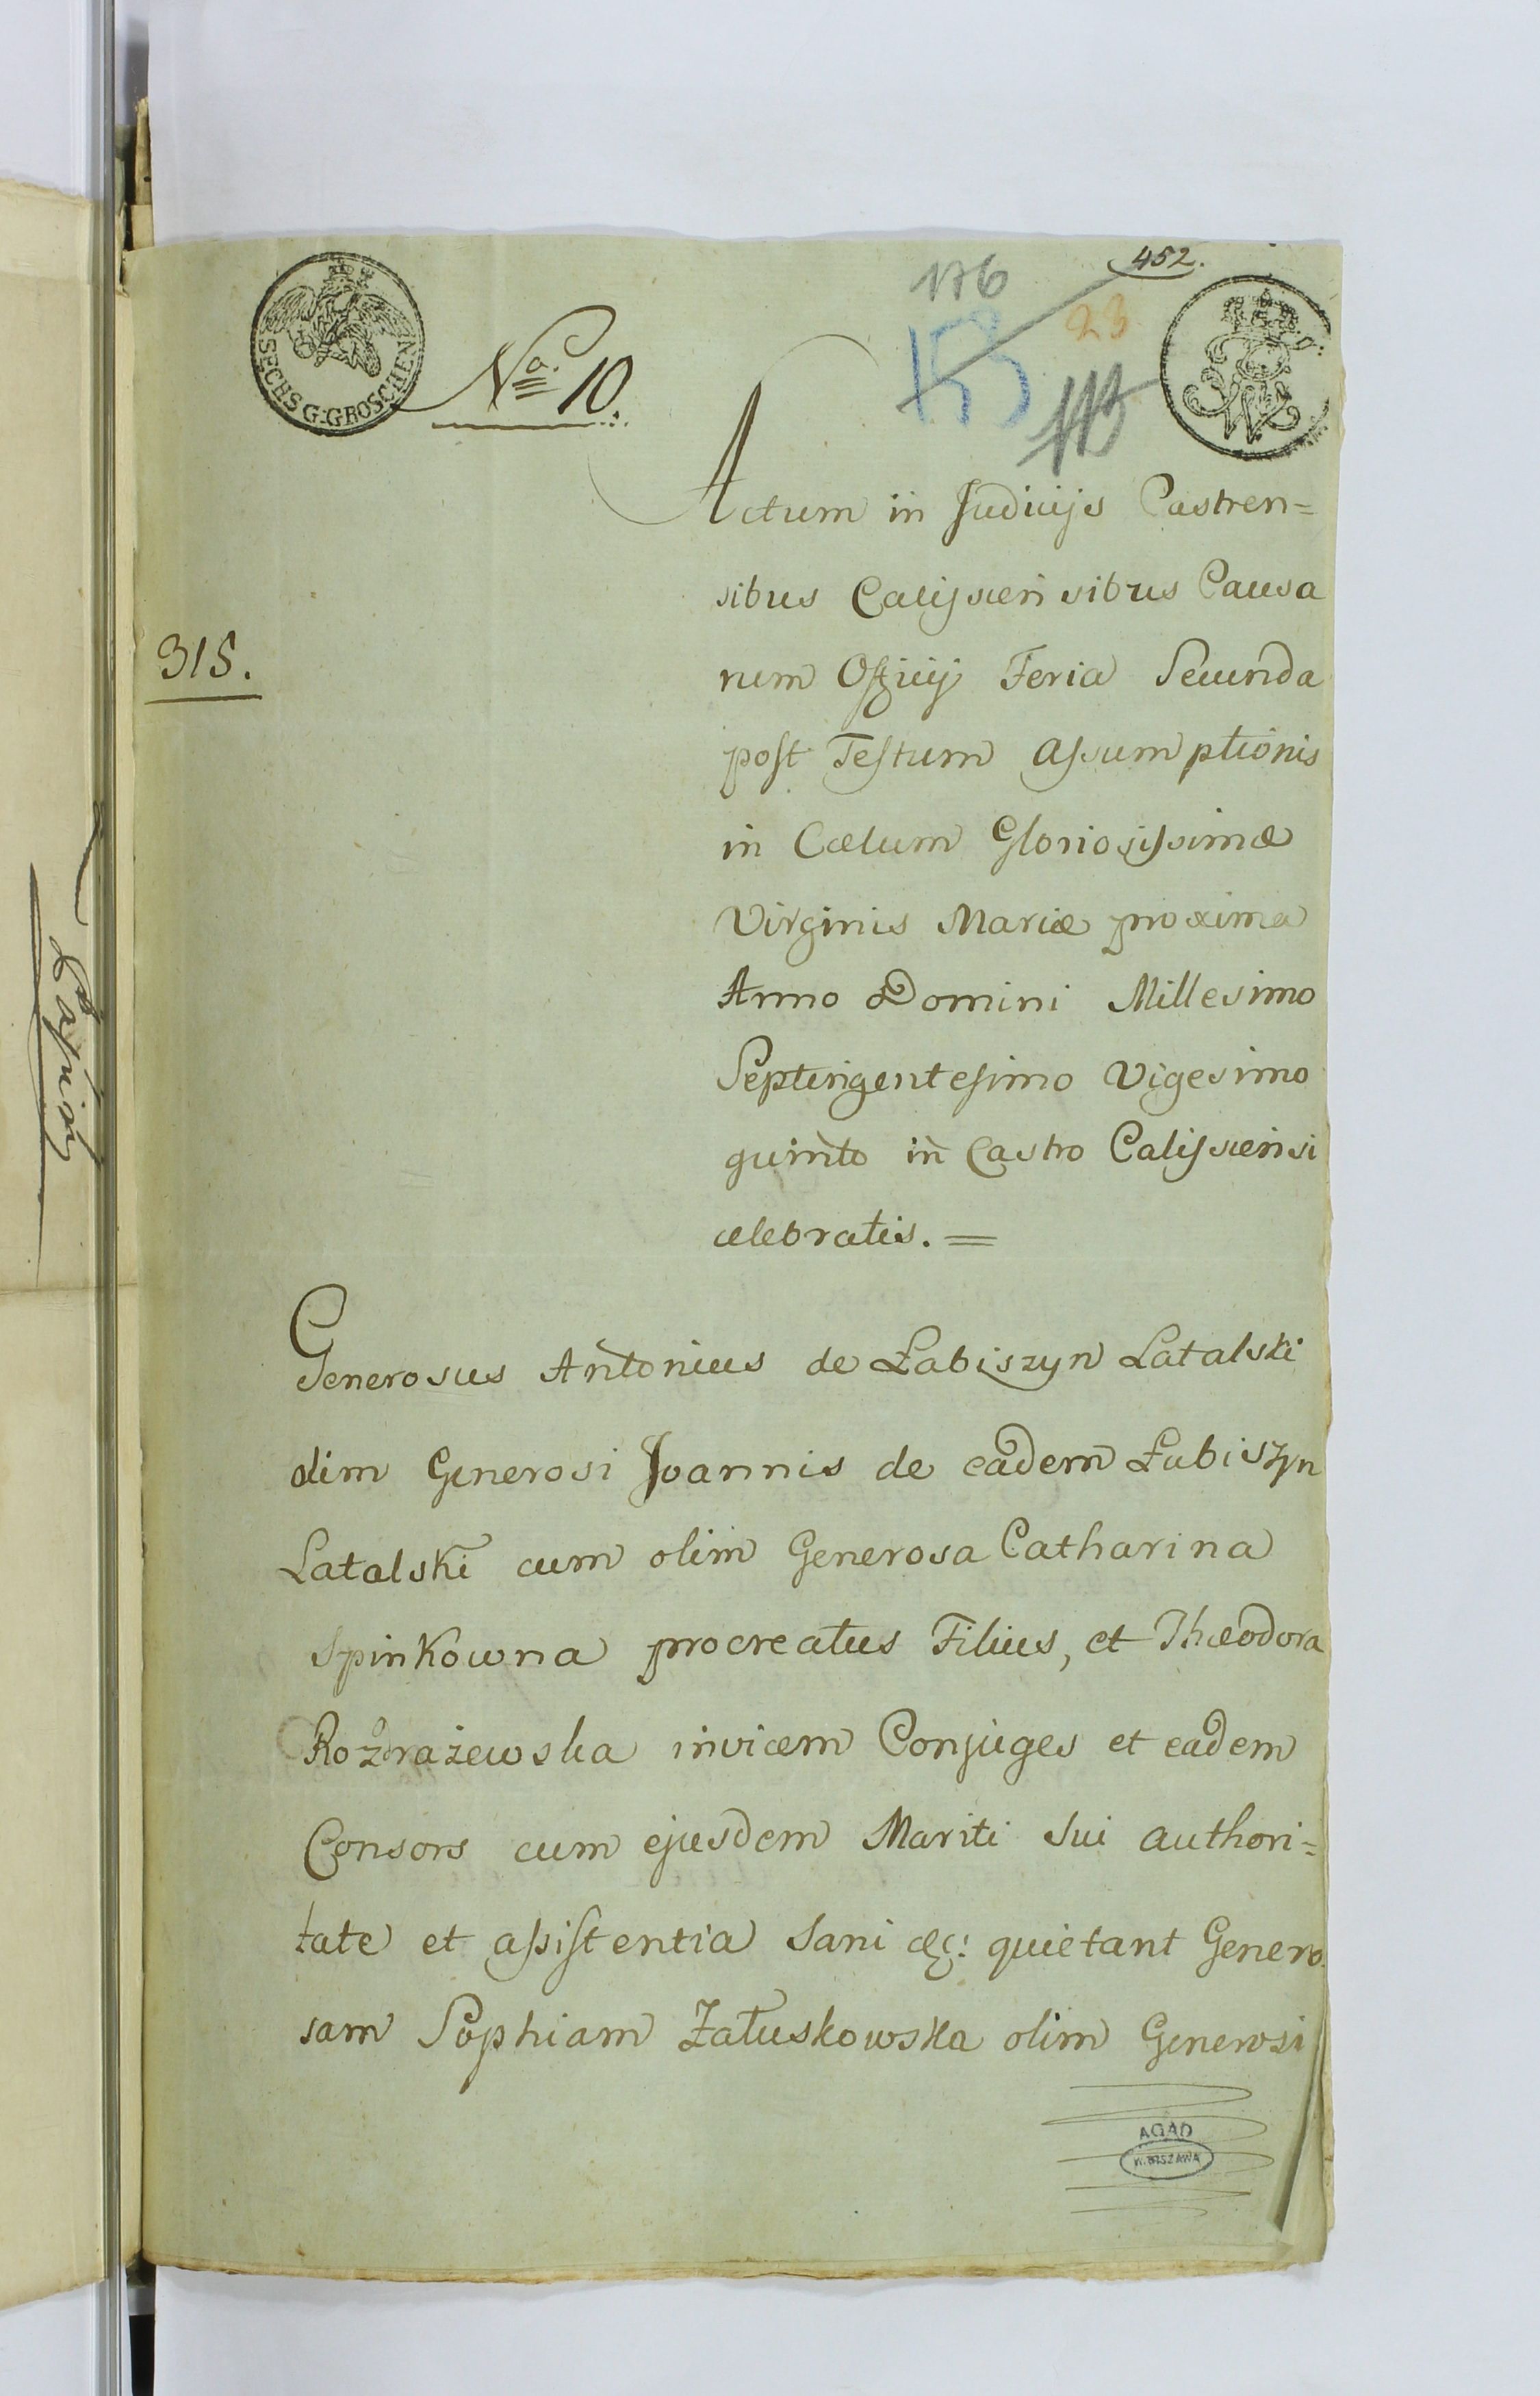 452.
176
153
23
113
SECHS G. GROSCHEN
No. 10.
Actum in Judicijs Castren=
sibus Calissiensibus Causa
rum Officij Feria Secunda
post Festum Assumptionis
in Cœlum Gloriosissimæ
Virginis Mariæ proxima
Anno Domini Millesimo
Septingentesimo Vigesimo
quinto in Castro Calissiensi
celebratis. =
315.
Generosus Antonius de Łabiszyn Latalski
olim Generosi Joannis de eadem Łabiszyn
Latalski cum olim Generosa Catharina
Spinkowna procreatus Filius, et Theodora
Rozdrażewska invicem Conjuges et eadem
Consors cum ejusdem Mariti sui authori=
tate et assistentia Sani &c: quietant Genero
sam Sophiam Załuskowska olim Generosi
AGAD
WARSZAWA